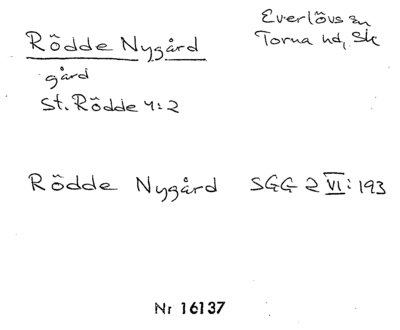 Rödde Nygård
Everlövs sn
Torna hd, Sk
gård
St. Rödde 4:2
Rödde Nygård SGG 2 VI: 193
Nr 16137